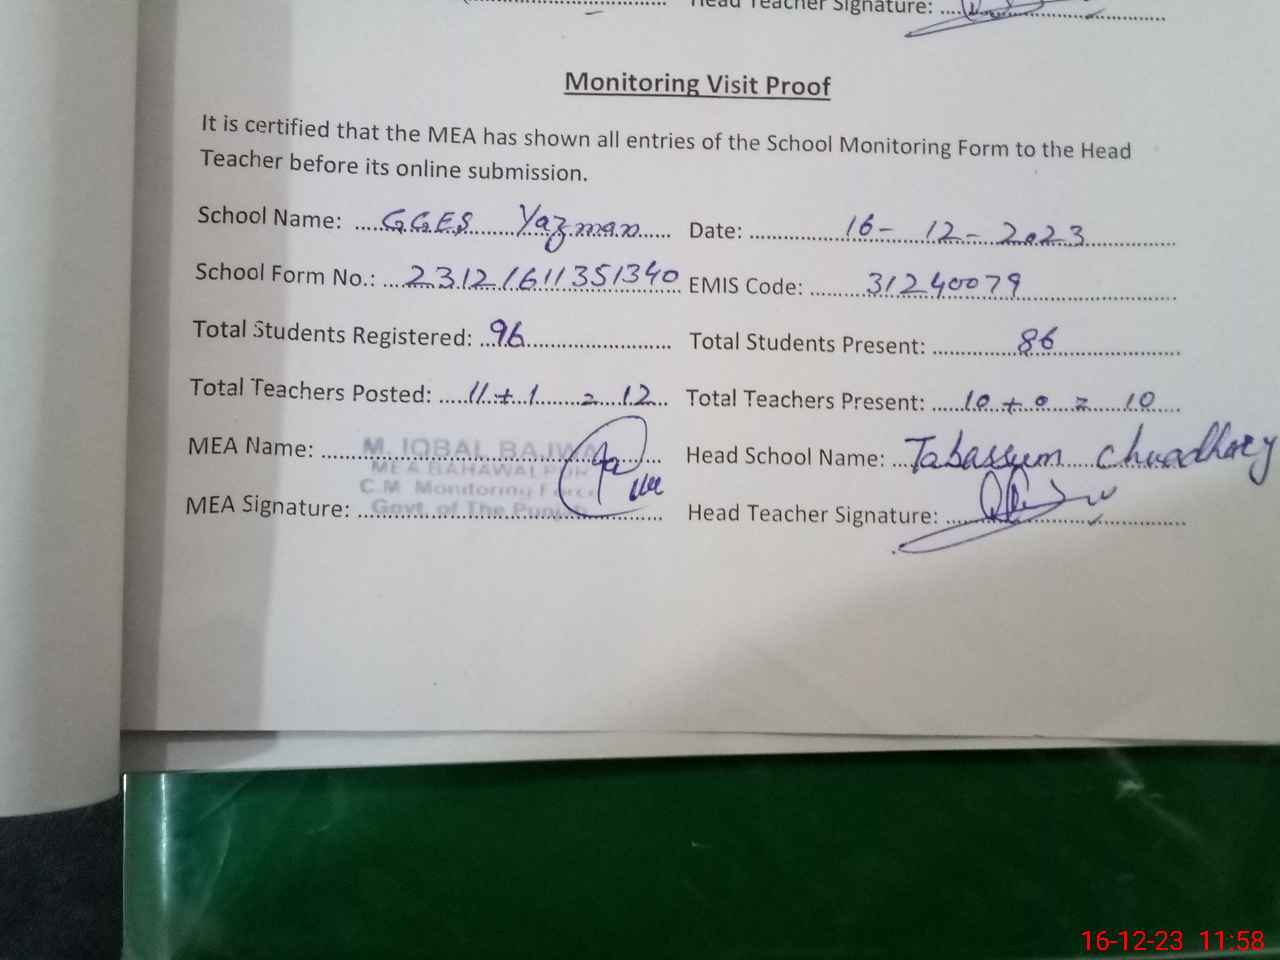 Head Teacher Signature: ....
Monitoring Visit Proof
It is certified that the MEA has shown all entries of the School Monitoring Form to the Head
Teacher before its online submission.
School Name: GGES Yazman Date: 16-12-2023
School Form No.: 23121611351340 EMIS Code: 31240079
Total Students Registered: 96 Total Students Present: 86
Total Teachers Posted: 11+1 = 12 Total Teachers Present: 10+0 = 10
MEA Name: M. IQBAL BAJWA Head School Name: Tabassum Chuadhary
MEA BAHAWALPUR
C.M Monitoring Force
MEA Signature: Govt. of The Punjab Head Teacher Signature:
16-12-23 11:58